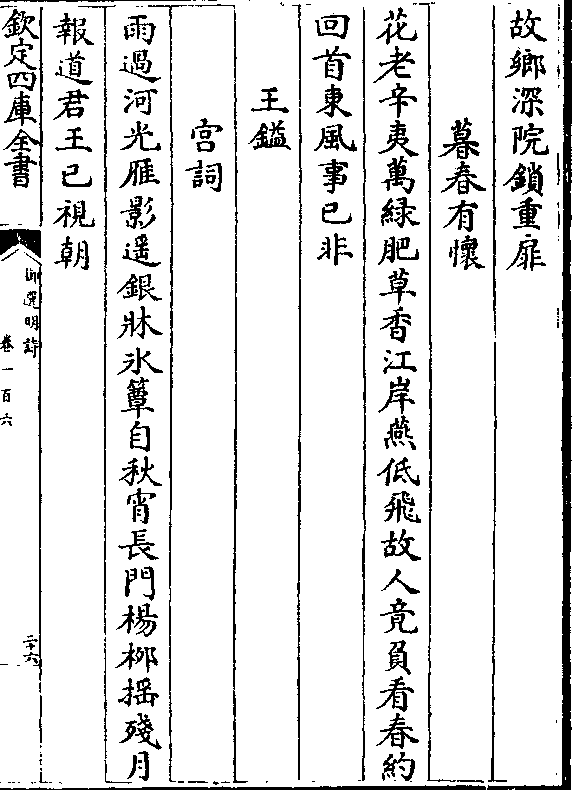 故鄉深院鎖重扉
暮春有懷
花老辛夷萬緑肥草香江岸燕低飛故人竟負看春約
回首東風事已非
王鎰
宫詞
雨過河光雁影遥銀牀氷簟自秋宵長門楊栁揺殘月
報道君王已視朝
欽定四庫全書
御選明詩
卷一百六
二十六